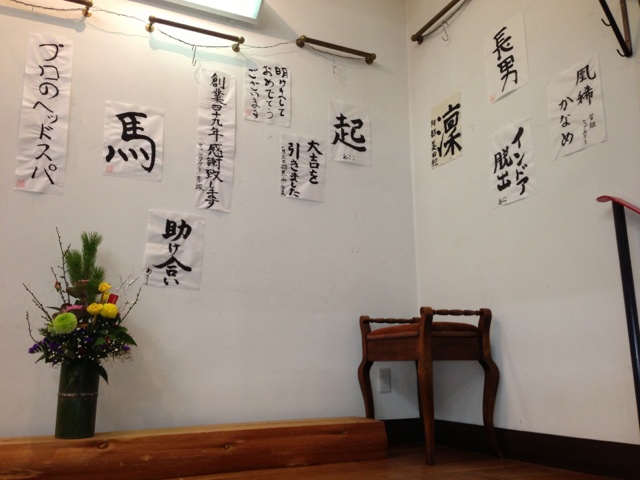 プロのヘッドスパ
馬
創業四十九年感謝致します
明けまして
おめでとう
ございます
大吉を
引きました
起
助け合い
凛
長男
インドア
脱出
風稀
かなめ